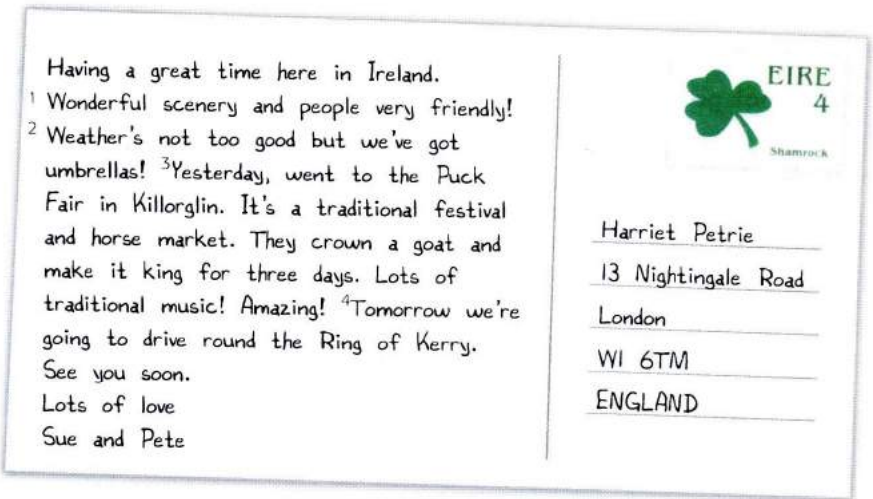 Having a great time here in Ireland.
1 Wonderful scenery and people very friendly!
2 Weather's not too good but we've got
umbrellas! 3Yesterday, went to the Puck
Fair in Killorglin. It's a traditional festival
and horse market. They crown a goat and
make it king for three days. Lots of
traditional music! Amazing! 4Tomorrow we're
going to drive round the Ring of Kerry.
See you soon.
Lots of love
Sue and Pete
EIRE
4
Shamrock
Harriet Petrie
13 Nightingale Road
London
W1 6TM
ENGLAND